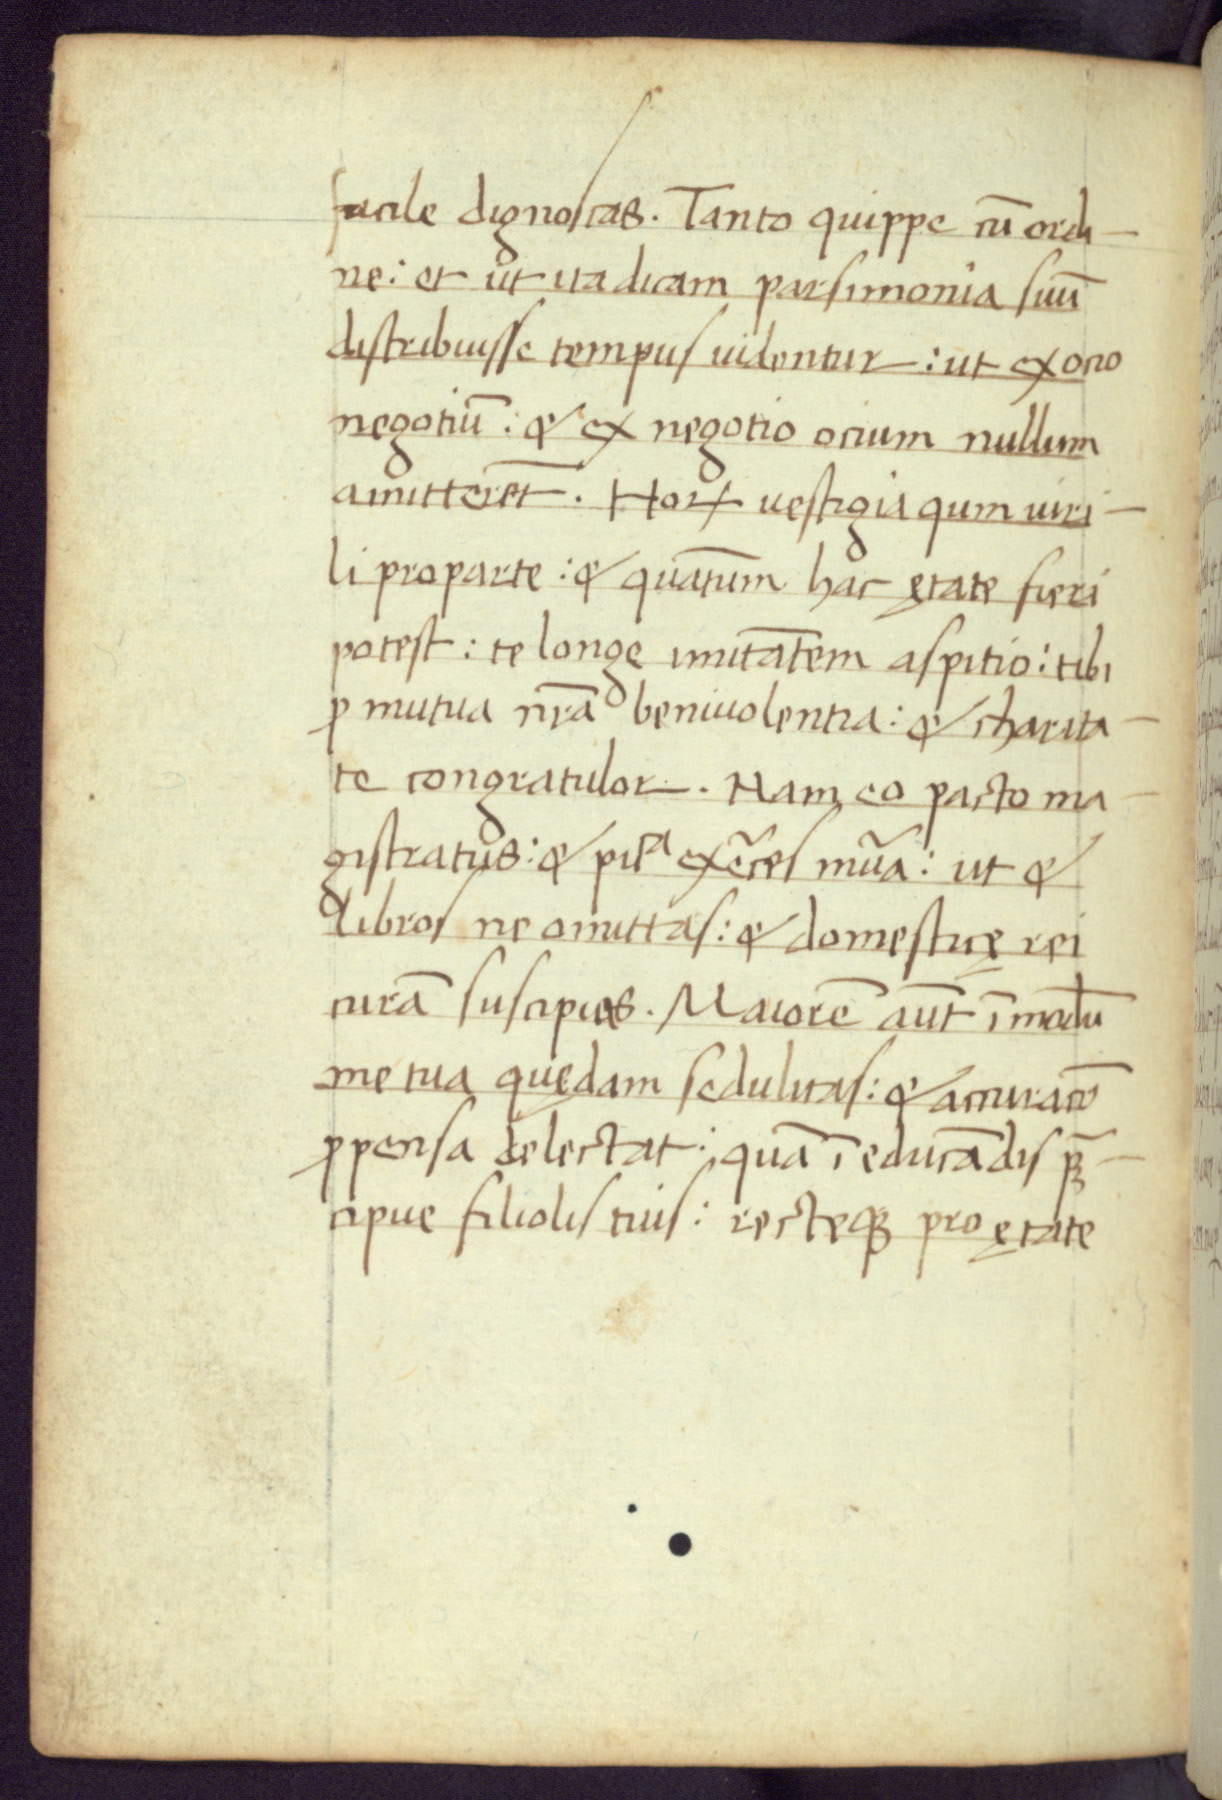 facile dignoſcas. Tanto quippe cū ordi-
ne: et ut ita dicam parſimonia ſuū
diſtribuiſſe tempuſ uidentur: ut ex ocio
negotiū: & ex negotio ocium nullum
amitterēt. Hoꝝ ueſtigia qum uiri-
li pro parte: & quātum hac ętate fieri
poteſt: te longe imitātem aſpitio: tibi
ꝓ mutua nrā beniuolentia: & charita-
te congratulor. Nam eo pacto ma-
giſtratus: & exerceſ mūa: ut &
libroſ ne omittaſ: & domeſticę rei
curā ſuſcipias. Maiorē aūt ī modū
me tua quędam ſedulitaſ: & accuratō
ꝓpenſa delectat: quā ī educādiſ p̄-
cipue filioliſ tuiſ: recteqꝫ pro ętate